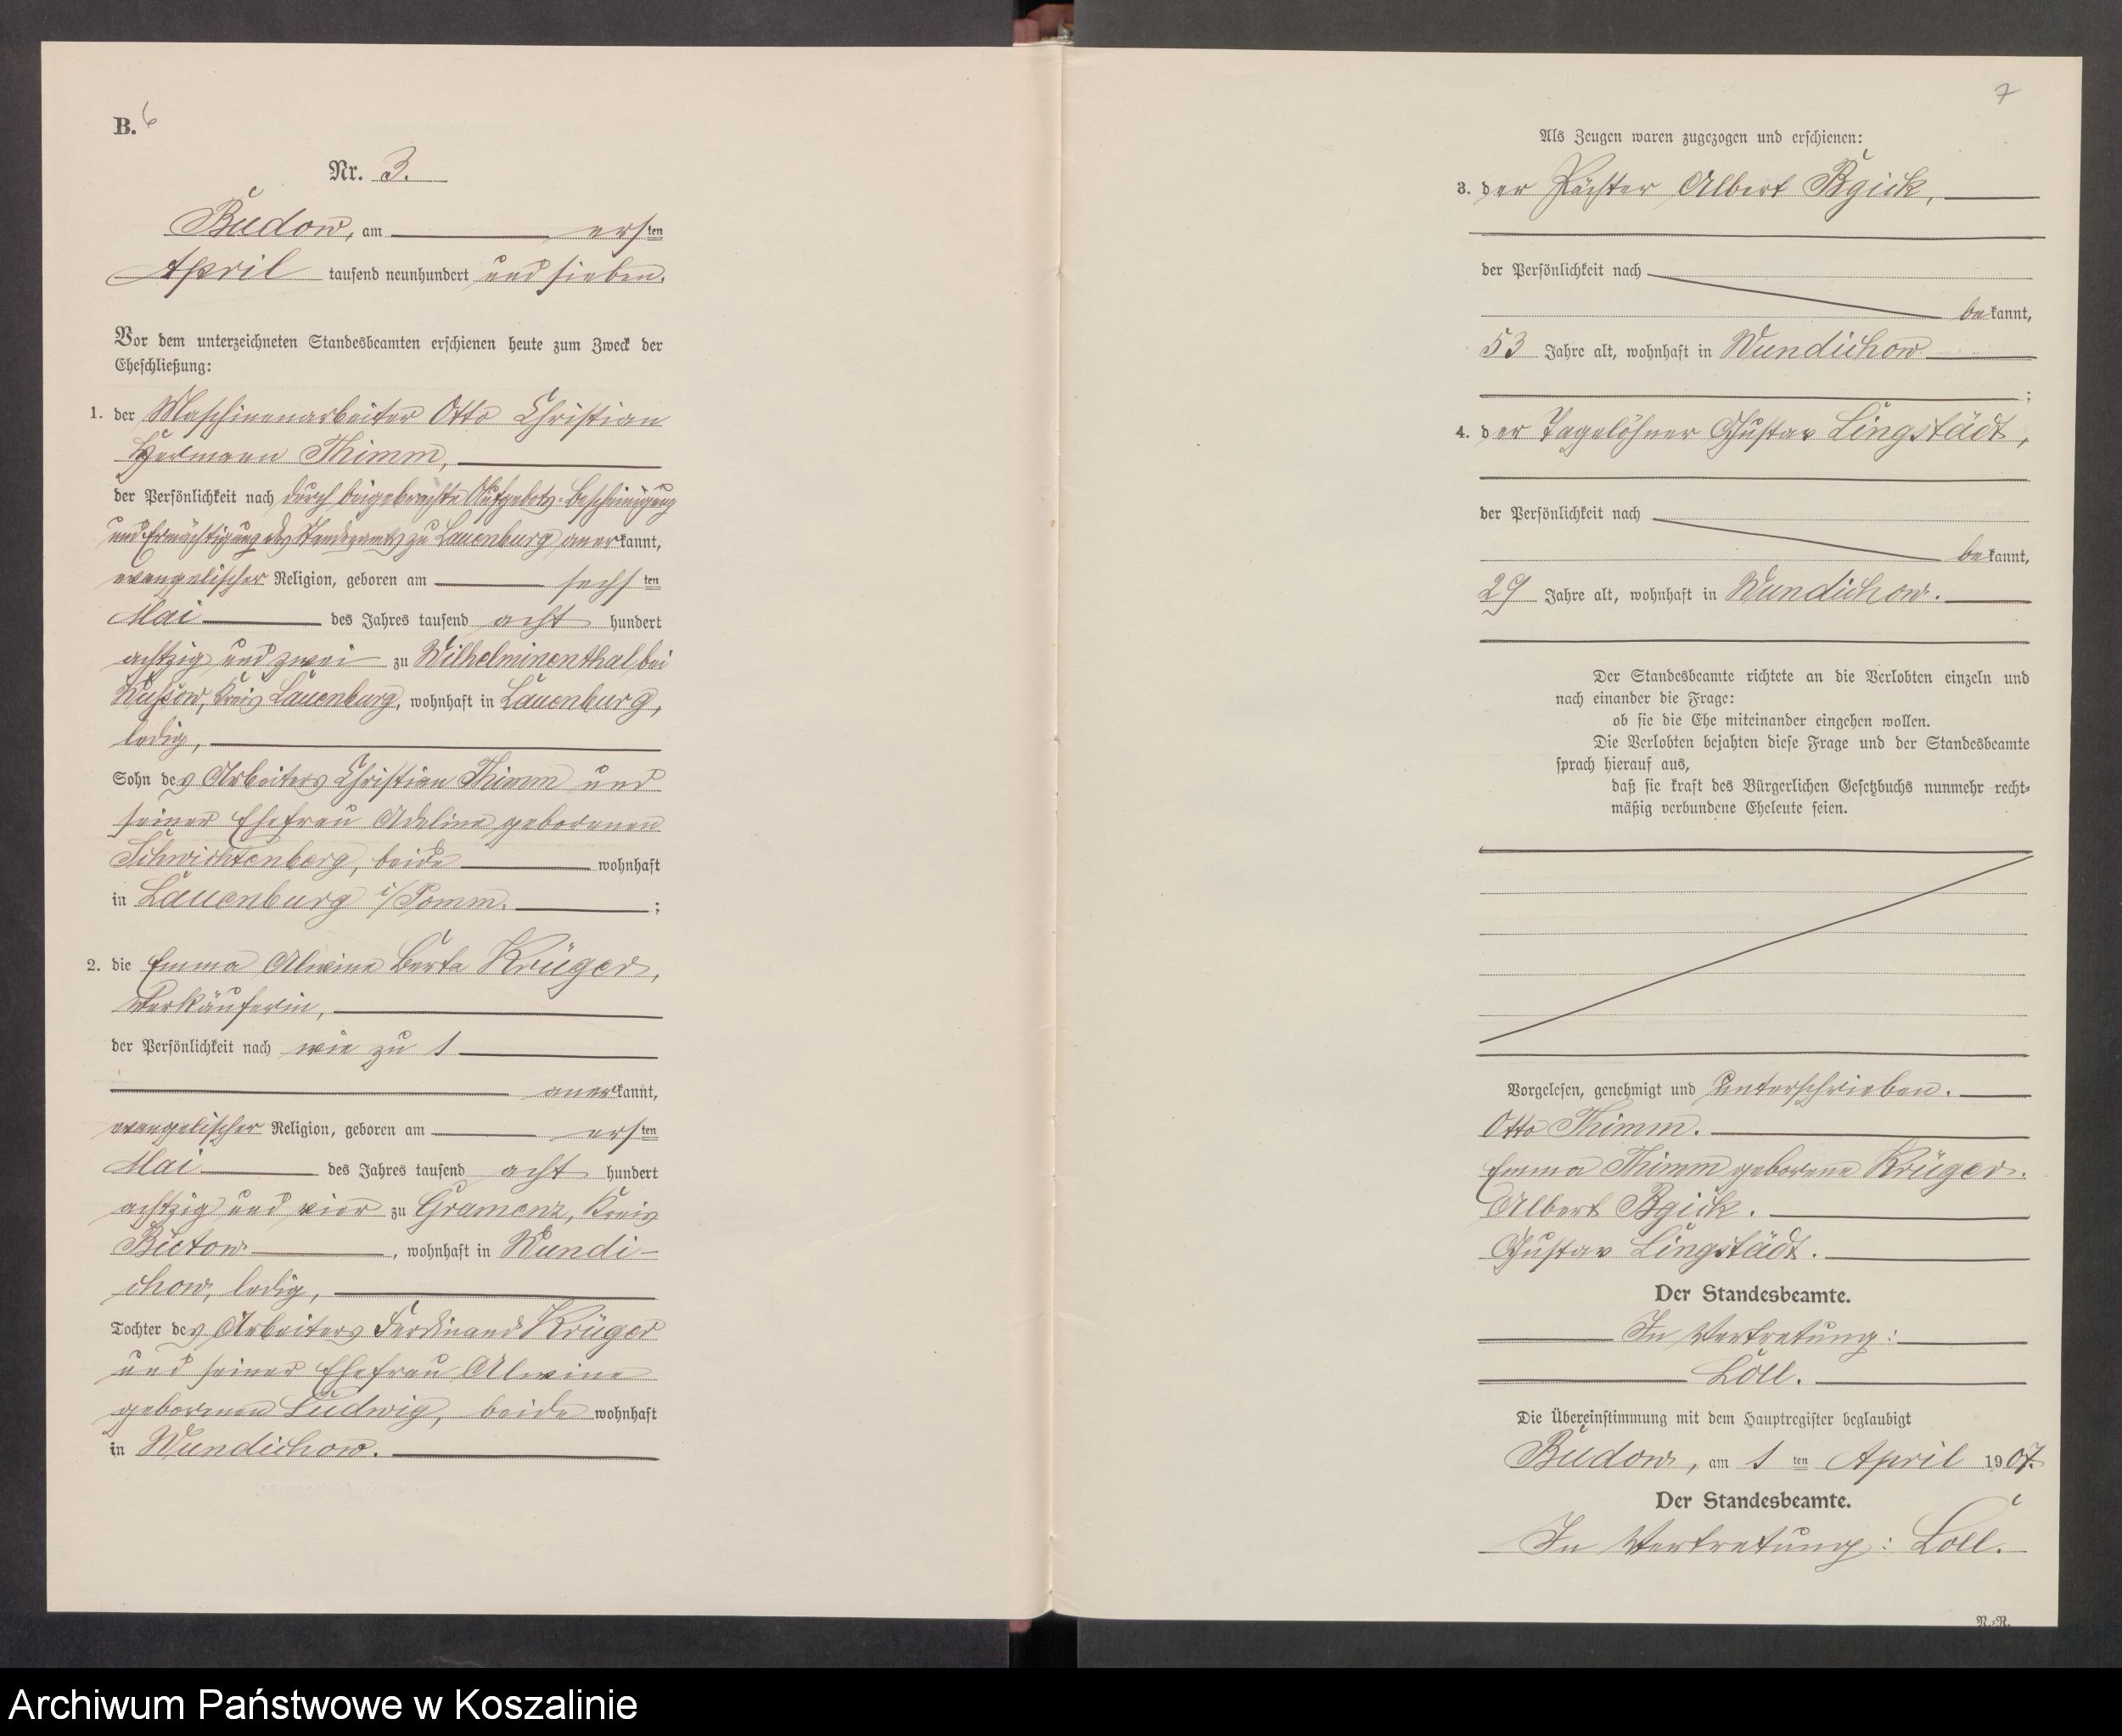 B. 6
Nr. 3.
Budow, am ersten
April tausend neunhundert und sieben.
Vor dem unterzeichneten Standesbeamten erschienen heute zum Zweck der
Eheschließung:
1. der Maschinenarbeiter Otto Christian
Hermann Thimm,
der Persönlichkeit nach durch beigebrachte Aufgebots-Bescheinigung
und Ermächtigung des Standesamts zu Lauenburg anerkannt,
evangelischer Religion, geboren am sechsten
Mai des Jahres tausend acht hundert
achtzig und zwei zu Wilhelminenthal bei
Kreis Lauenburg, wohnhaft in Lauenburg,
ledig,
Sohn des Arbeiters Christian Thimm und
seiner Ehefrau Adeline geborenen
Schwichtenberg, beide wohnhaft
in Lauenburg i/Pomm. ;
2. die Emma Alwine Berta Krüger,
Verkäuferin,
der Persönlichkeit nach wie zu 1
anerkannt,
evangelischer Religion, geboren am ersten
Mai des Jahres tausend acht hundert
achtzig und vier zu Gramenz, Kreis
Bütow, wohnhaft in Wundi-
chow, ledig,
Tochter des Arbeiters Ferdinand Krüger
und seiner Ehefrau Alwine
geborenen Ludwig, beide wohnhaft
in Wundichow.
7
Als Zeugen waren zugezogen und erschienen:
3. der Pächter Albert
der Persönlichkeit nach
bekannt,
53 Jahre alt, wohnhaft in Wundichow
;
4. der Tagelöhner Gustav Lingstädt,
der Persönlichkeit nach
bekannt,
29 Jahre alt, wohnhaft in Wundichow.
Der Standesbeamte richtete an die Verlobten einzeln und
nach einander die Frage:
ob sie die Ehe miteinander eingehen wollen.
Die Verlobten bejahten diese Frage und der Standesbeamte
sprach hierauf aus,
daß sie kraft des Bürgerlichen Gesetzbuchs nunmehr recht-
mäßig verbundene Eheleute seien.
Vorgelesen, genehmigt und unterschrieben.
Otto Thimm.
Emma Thimm geborene Krüger.
Albert
Gustav Lingstädt.
Der Standesbeamte.
In Vertretung:
Loll.
Die Übereinstimmung mit dem Hauptregister beglaubigt
Budow, am 1 ten April 1907.
Der Standesbeamte.
In Vertretung: Loll.
N.-R.
Archiwum Państwowe w Koszalinie